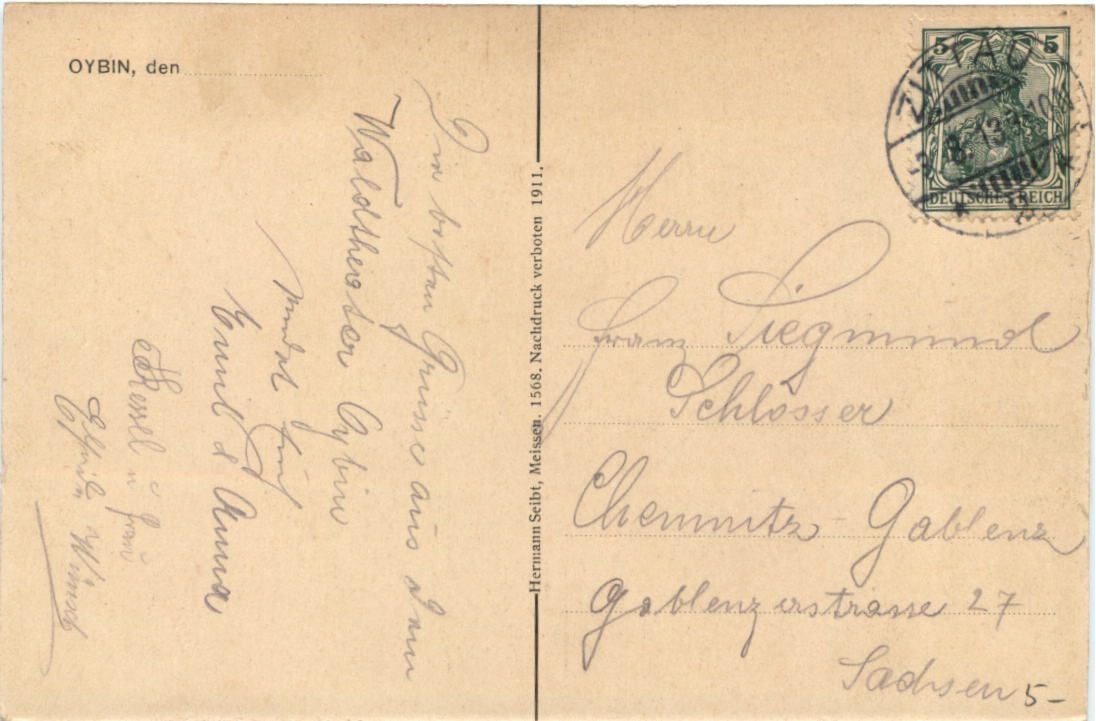 OYBIN, den
Die besten Grüsse aus dem
Waldtheater Oybin
sendet Euch
Emil & Anna
Kessel u Frau
Elfriede Wünsch
Hermann Seibt, Meissen. 1568. Nachdruck verboten 1911.
5 5
ZITTAU
8. 13
DEUTSCHES REICH
Herrn
Franz Siegmund
Schlosser
Chemnitz-Gablenz
Gablenzerstrasse 27
Sachsen
5-